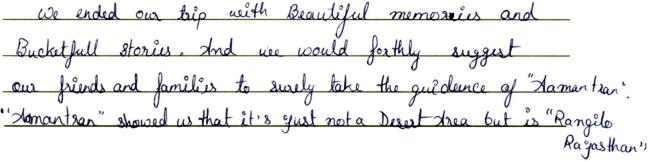 We ended our trip with Beautiful memories and
Bucketfull stories. And we would forthly suggest
our friends and families to surely take the guidence of "Aamantran".
"Aamantran" showed us that it's just not a Desert Area but is "Rangilo
Rajasthan"